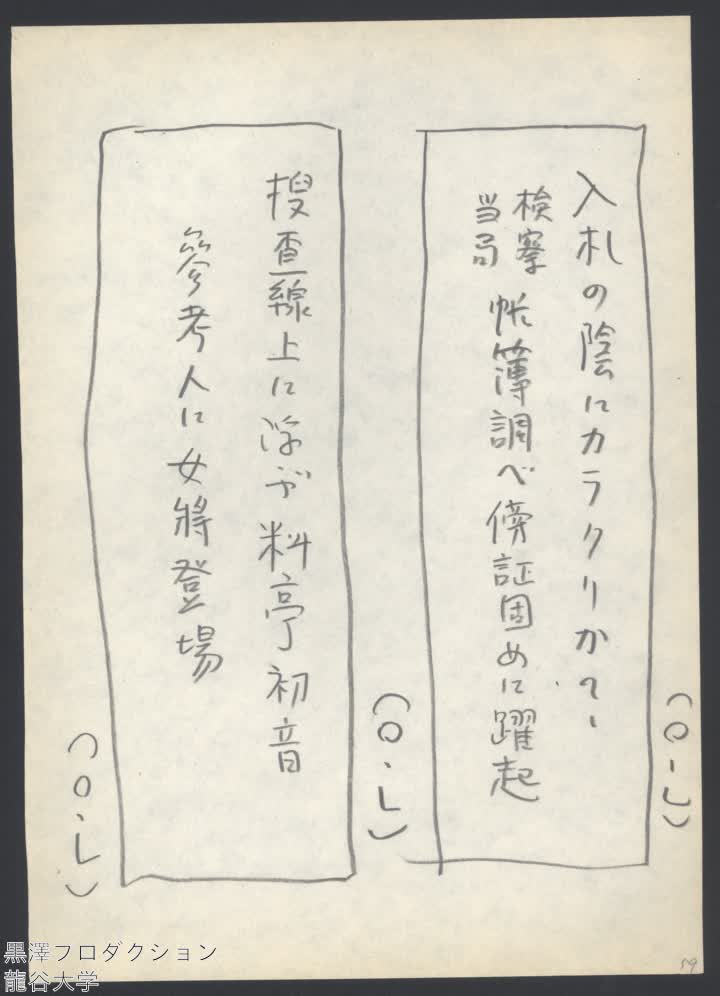 (O・L)
入札の陰にカラクリか？
検察
当局
帳簿調べ傍証固めに躍起
(O・L)
捜査線上に浮ぶ料亭初音
参考人に女将登場
(O・L)
59
黒澤プロダクション
龍谷大学